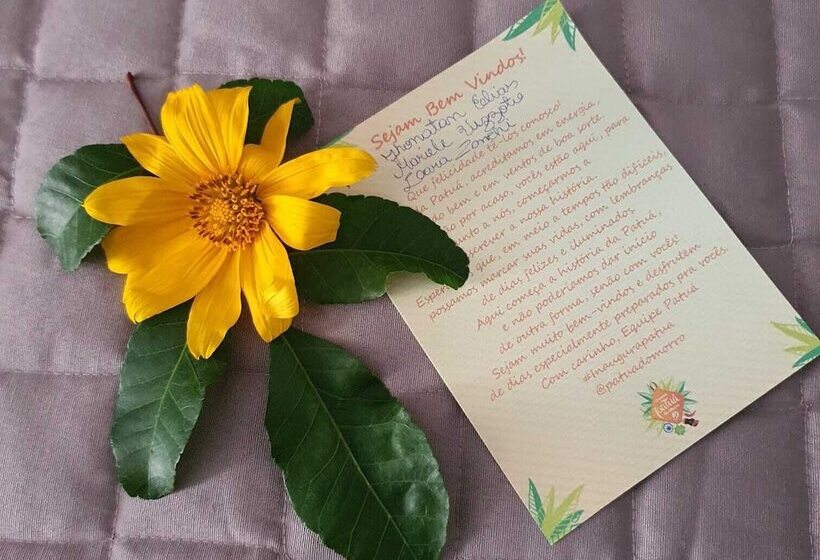 Sejam Bem Vindos!
Jhonatan
Que felicidade tê-los conosco!
Na Patuá, acreditamos em energia,
do bem e em ventos de boa sorte.
por acaso, vocês estão aqui, para
junto a nós, começarmos a
escrever a nossa história.
que, em meio a tempos tão difíceis,
possamos marcar suas vidas, com lembranças
de dias felizes e iluminados
Aqui começa a história da Patuá,
e não poderíamos dar início
de outra forma, senão com vocês!
Sejam muito bem-vindos e desfrutem
de dias especialmente preparados pra vocês.
Com carinho, Equipe Patuá
#Inaugurapatua
@patuadomorro
PATUÁ